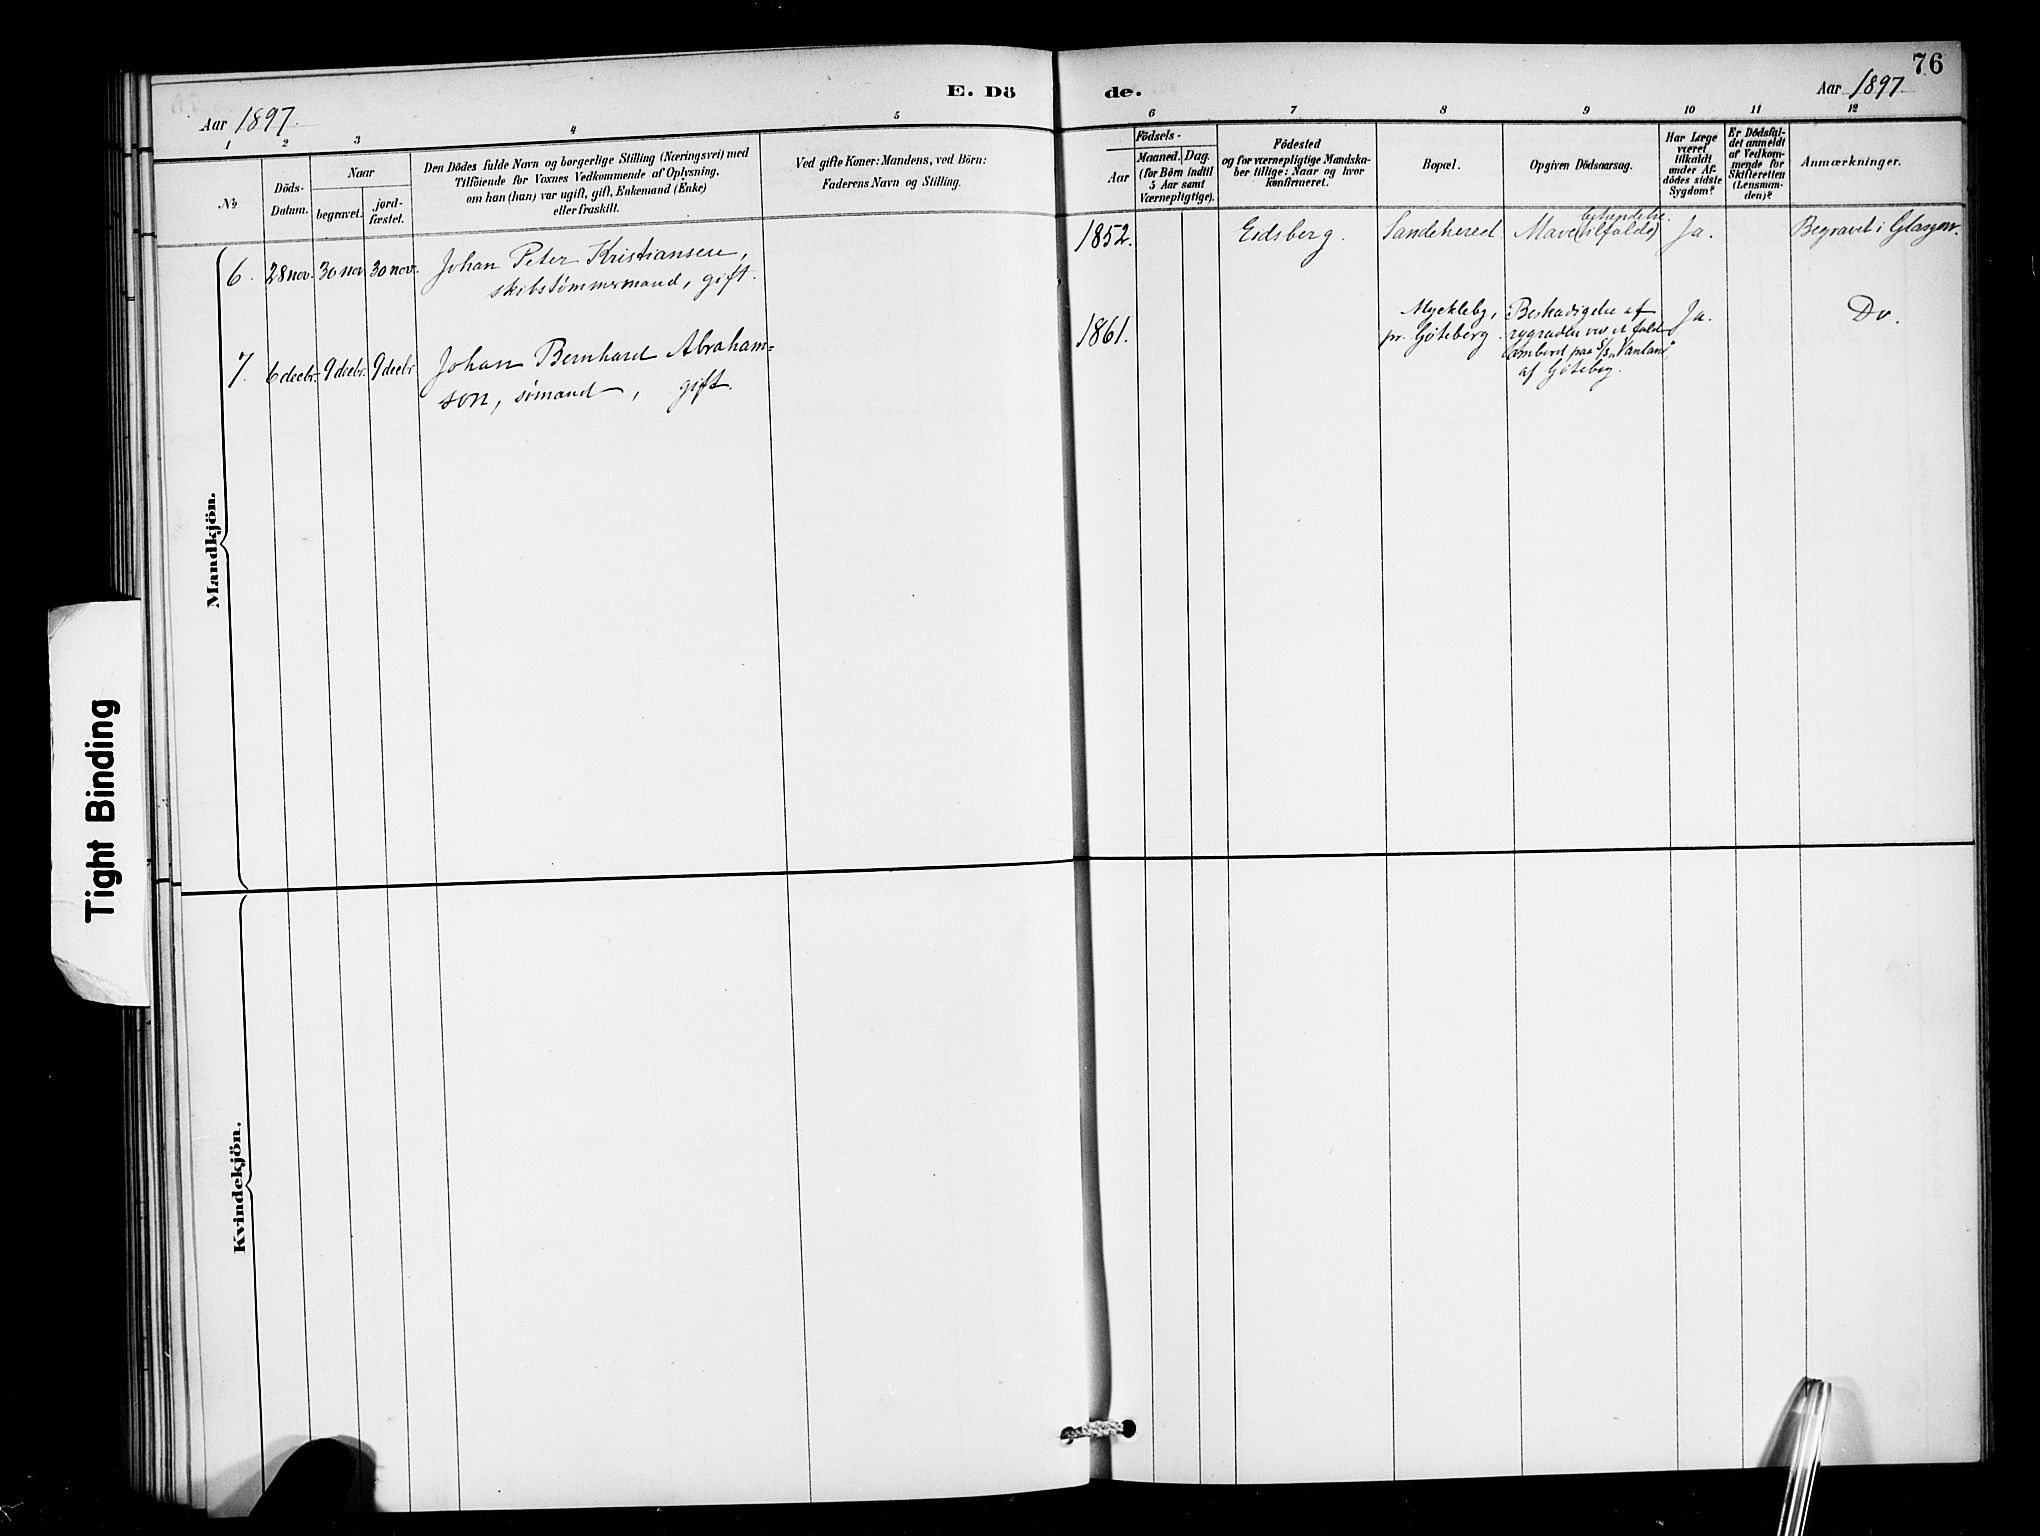 76
E. Dö de.
Aar 1897. Aar 1897
1 2 3 4 5 6 7 8 9 10 11 12
№
Döds-
Datum.
Naar
begravet.
jord-
fæstet.
Den Dödes fulde Navn og borgerlige Stilling (Næringsvei) med
Tilföiende for Voxnes Vedkommende af Oplysning,
om han (hun) var ugift, gift, Enkemand (Enke)
eller fraskilt.
Ved gifte Koner: Mandens, ved Börn:
Faderens Navn og Stilling.
Födsels-
Aar
Maaned. Dag.
(for Börn indtil
5 Aar samt
Værnepligtige).
Födested
og for værnepligtige Mandska-
ber tillige: Naar og hvor
konfirmeret.
Bopæl.
Opgiven Dödsaarsag.
Har Læge
været
tilkaldt
under Af-
dödes sidste
Sygdom?
Er Dödsfal-
det anmeldt
af Vedkom-
mende for
Skifteretten
(Lensman-
den)?
Anmærkninger.
Mandkjön.
6. 28 nov. 30 nov. 30 nov. Johan Peter Kristiansen,
skibstømmermand, gift.
1852. Eidsberg. Sandehered Mave(tilfælde) Ja. Begravet i Glasgow.
betændelse.
7. 6 decbr. 9 decbr. 9 decbr. Johan Bernhard Abraham=
son, sømand, gift.
1861. Myckleby,
pr. Gøteberg.
Beskadigelse af
rygraden ved et fald
ombord paa S/S "Vanland",
af Gøteberg.
Ja. Do.
Kvindekjön.
Tight Binding